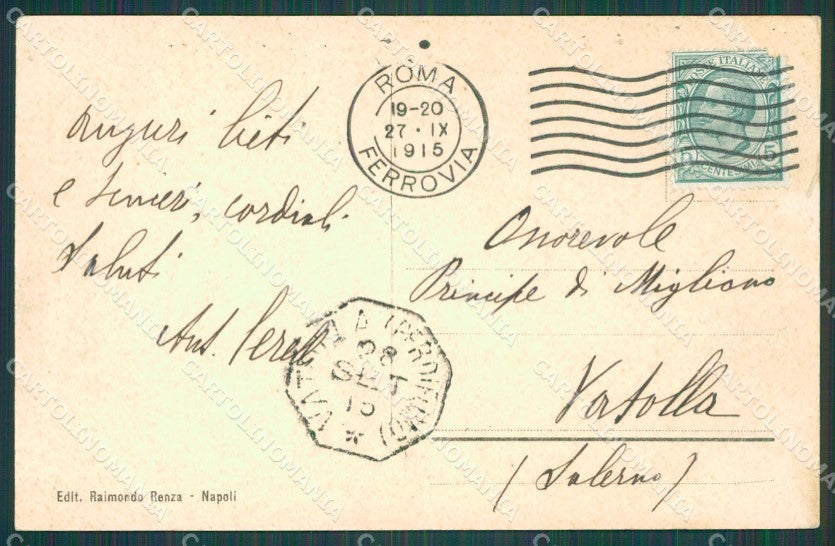 ROMA
19-20
27 · IX
1915
FERROVIA
POSTE ITALIANE
5 CENTESIMI 5
Auguri lieti
e sinceri, cordiali
saluti
Ant.
Onorevole
Principe di Migliano
Vatolla
(Salerno)
VATOLLA (PERDIFUMO)
28
SET
15
Edit. Raimondo Renza - Napoli
CARTOLINOMANIA